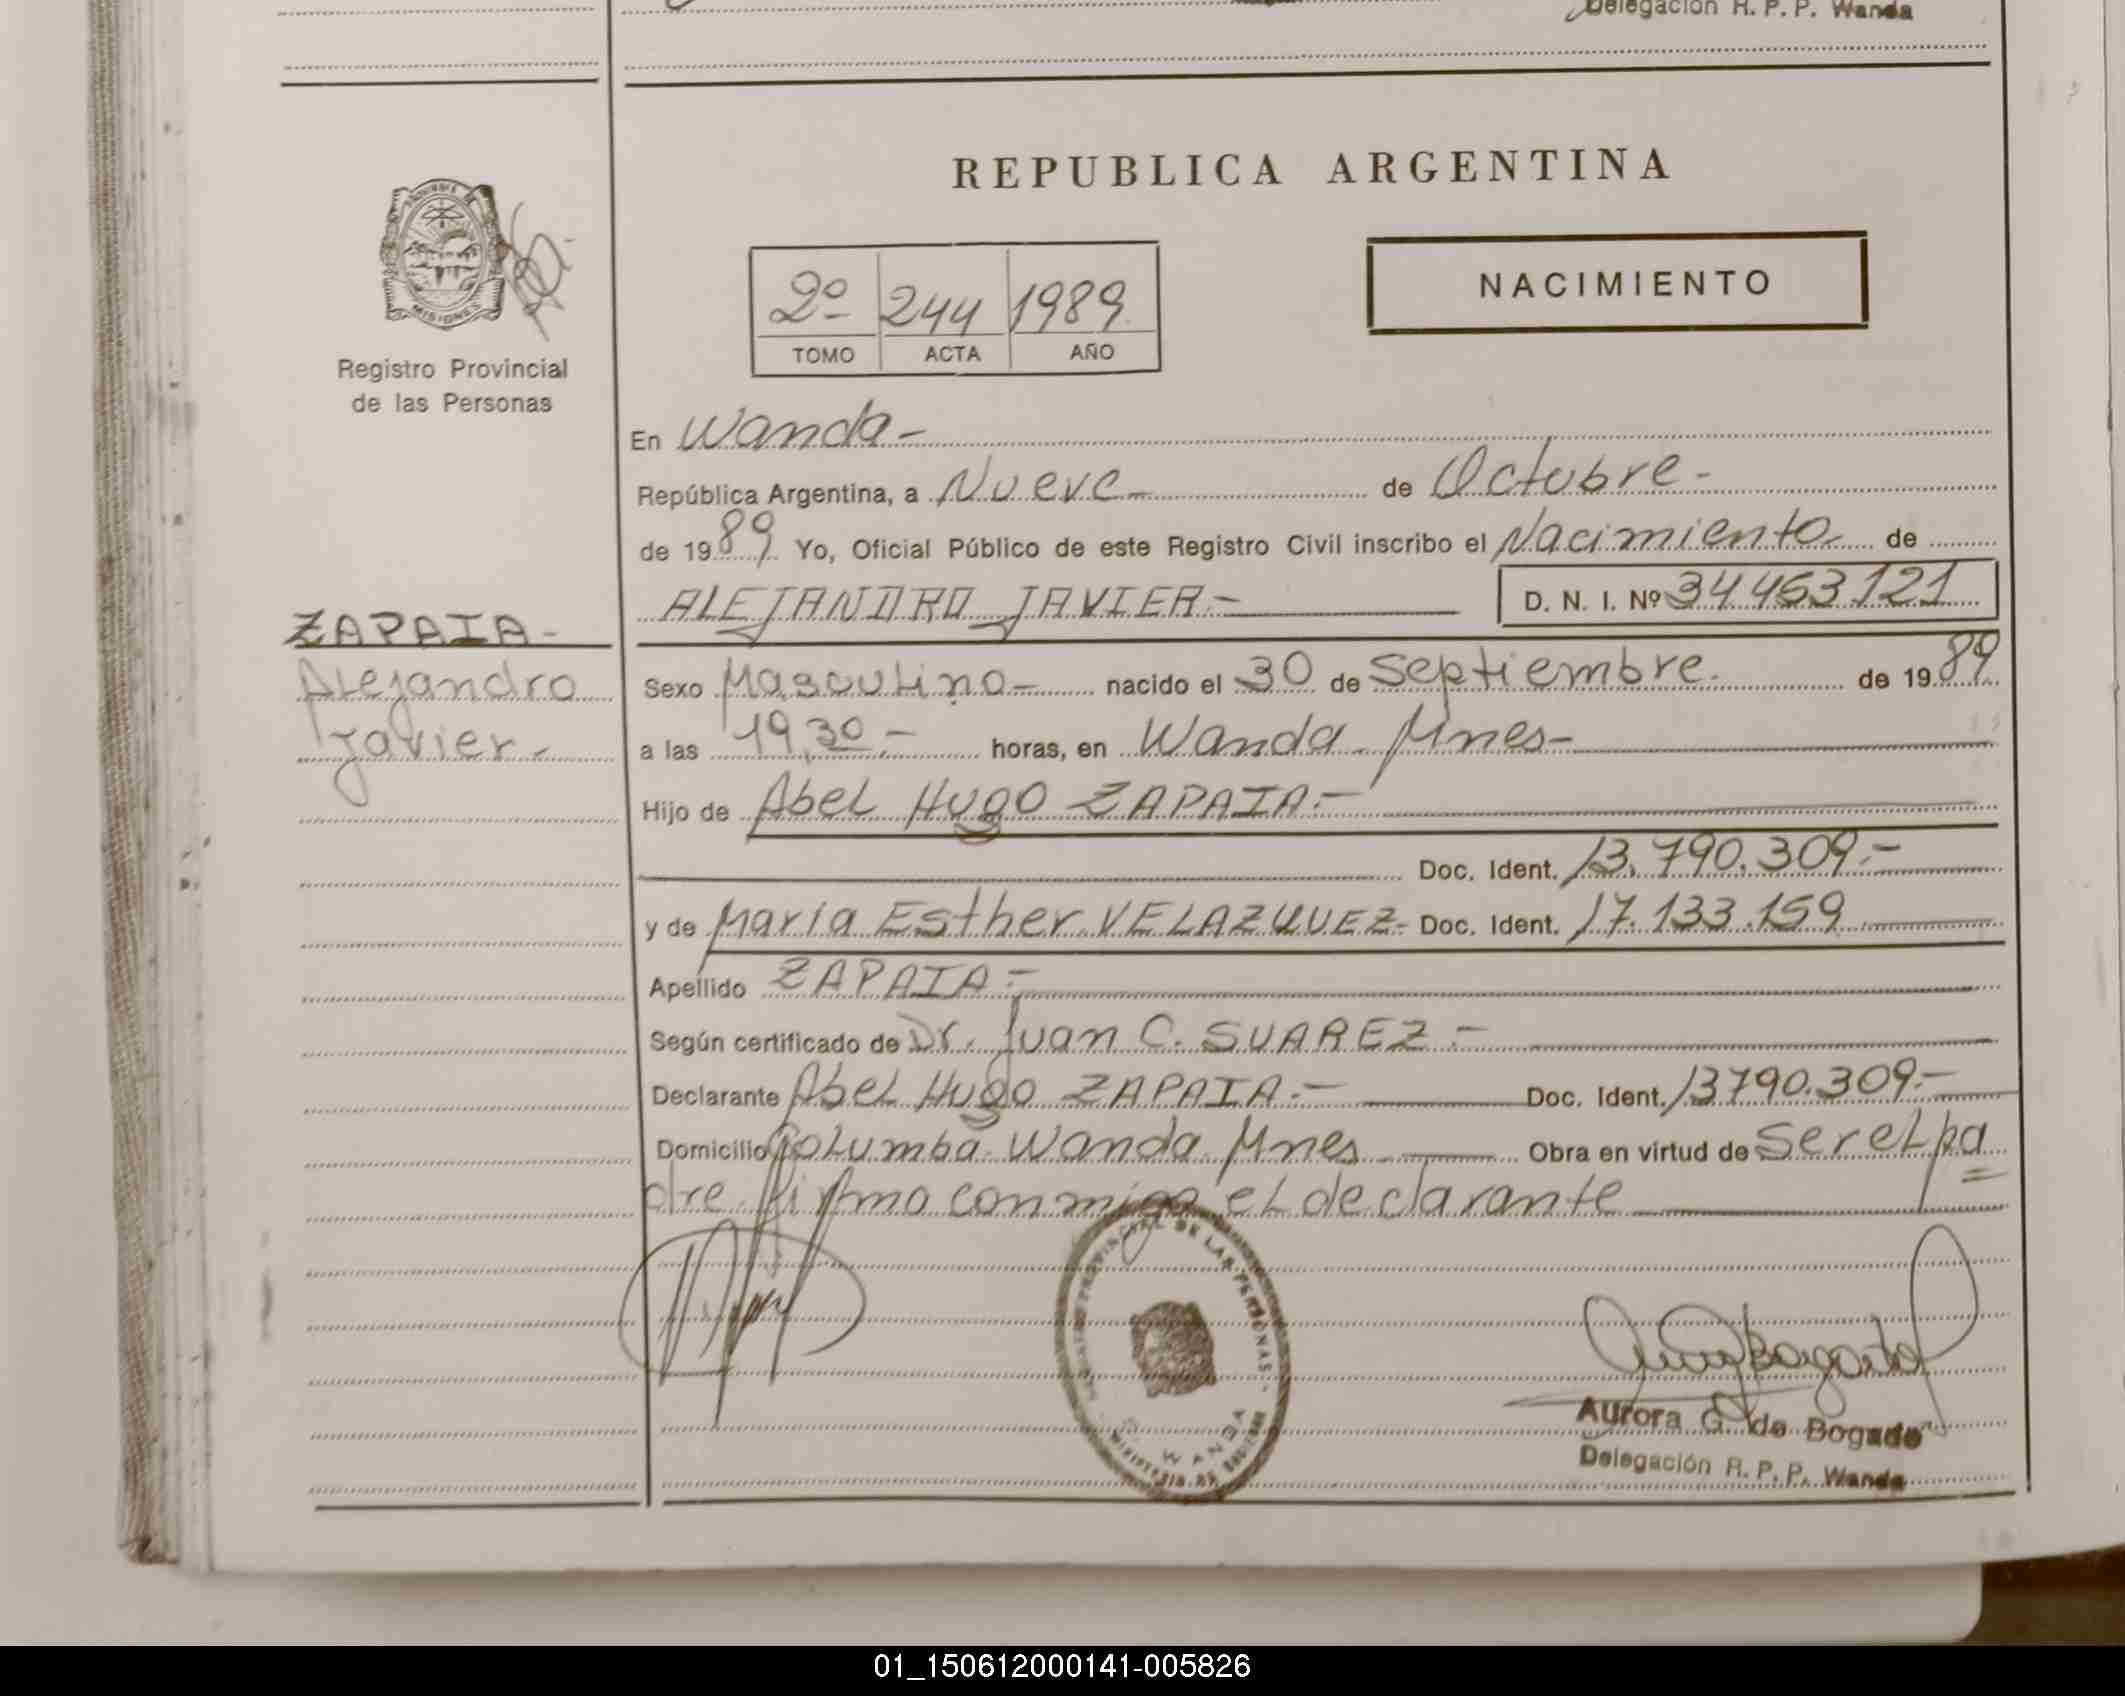 Delegación R. P. P. Wanda
REPUBLICA ARGENTINA
MISIONES
Registro Provincial
de las Personas
2º 244 1989
TOMO ACTA AÑO
NACIMIENTO
En Wanda-
República Argentina, a Nueve- de Octubre-
de 1989. Yo, Oficial Público de este Registro Civil inscribo el Nacimiento de
ALEJANDRO JAVIER.- D. N. I. Nº 34463121
ZAPATA-
Alejandro
Javier-
Sexo Masculino- nacido el 30 de Septiembre. de 1989
a las 19,30.- horas, en Wanda Mnes-
Hijo de Abel Hugo ZAPATA.-
Doc. Ident. 13.790.309.-
y de Maria Esther VELAZQUEZ- Doc. Ident. 17.133.159
Apellido ZAPATA.-
Según certificado de Dr. Juan C. SUAREZ.-
Declarante Abel Hugo ZAPATA.- Doc. Ident. 13790.309.-
Domicilio Columba. Wanda Mnes Obra en virtud de ser el pa
dre. firmo conmigo el declarante
PROVINCIAL DE LAS PERSONAS
WANDA
Aurora G. de Bogado
Delegación R. P. P. Wanda
01_150612000141-005826